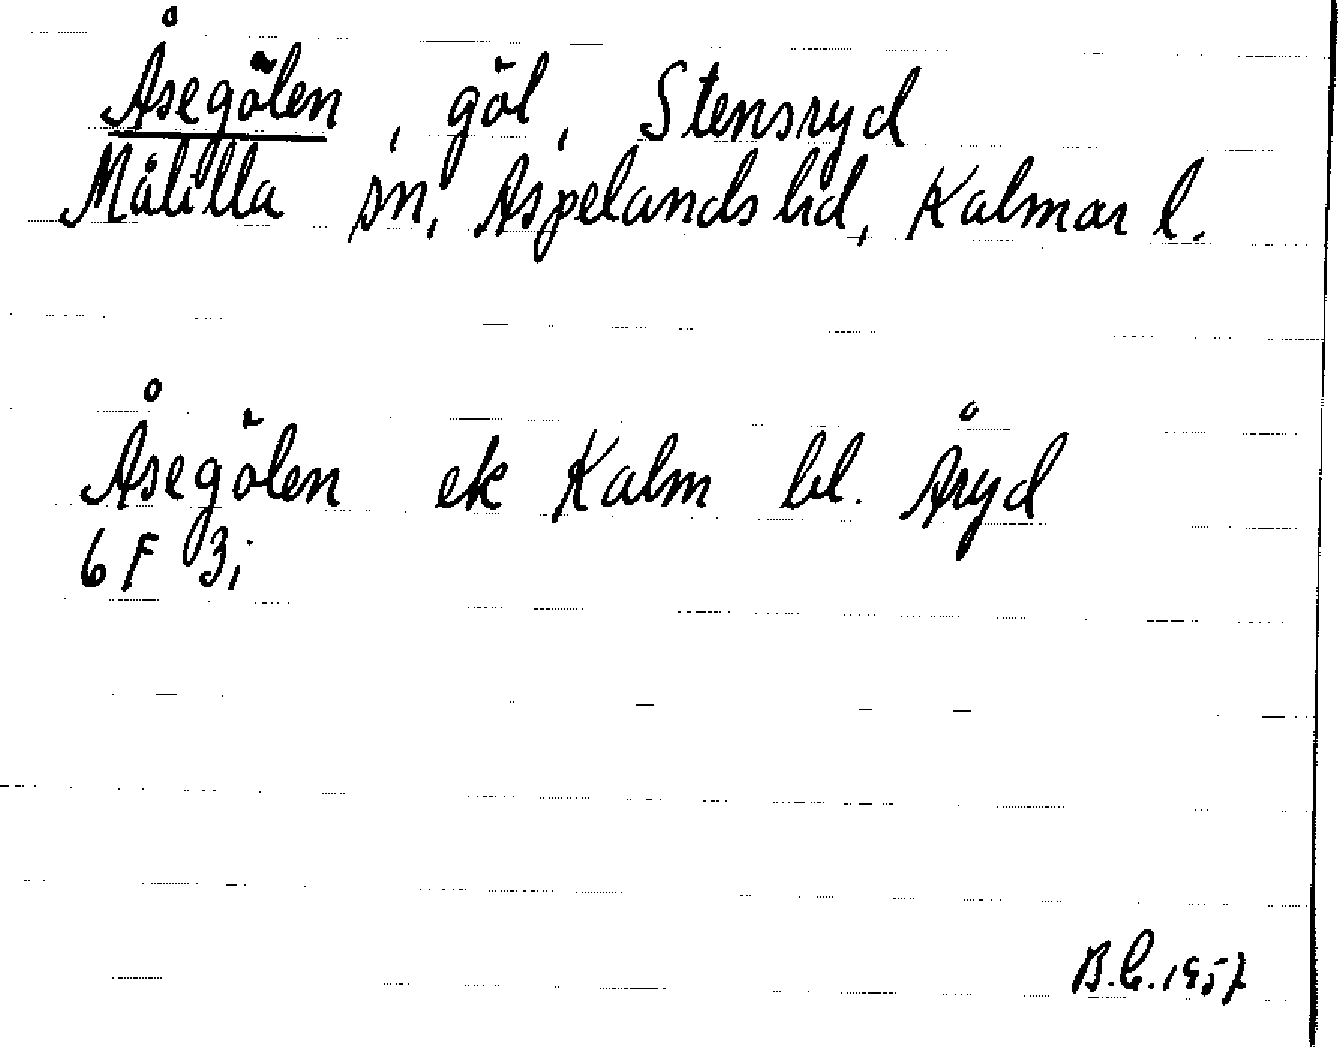 Åsegölen, göl, Stensryd
Målilla sn, Aspelands hd, Kalmar l.
Åsegölen ek Kalm bl. Åryd
6 F 3 i
B.C. 1957